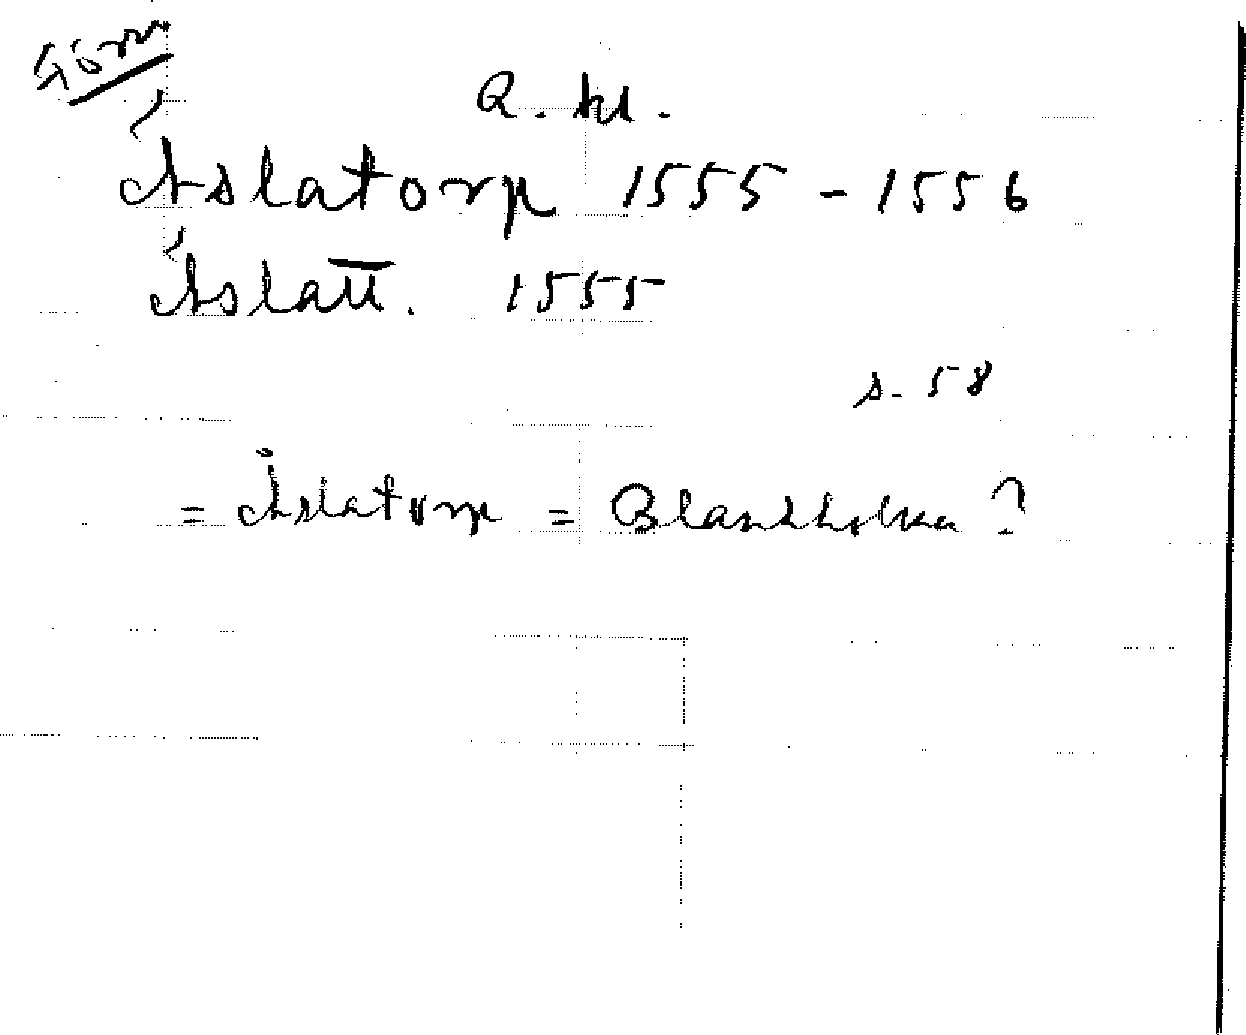 Q. hl.
Áslatorp 1555 - 1556
Áslatt. 1555
s. 58
= Åslatorp = Blankholma ?